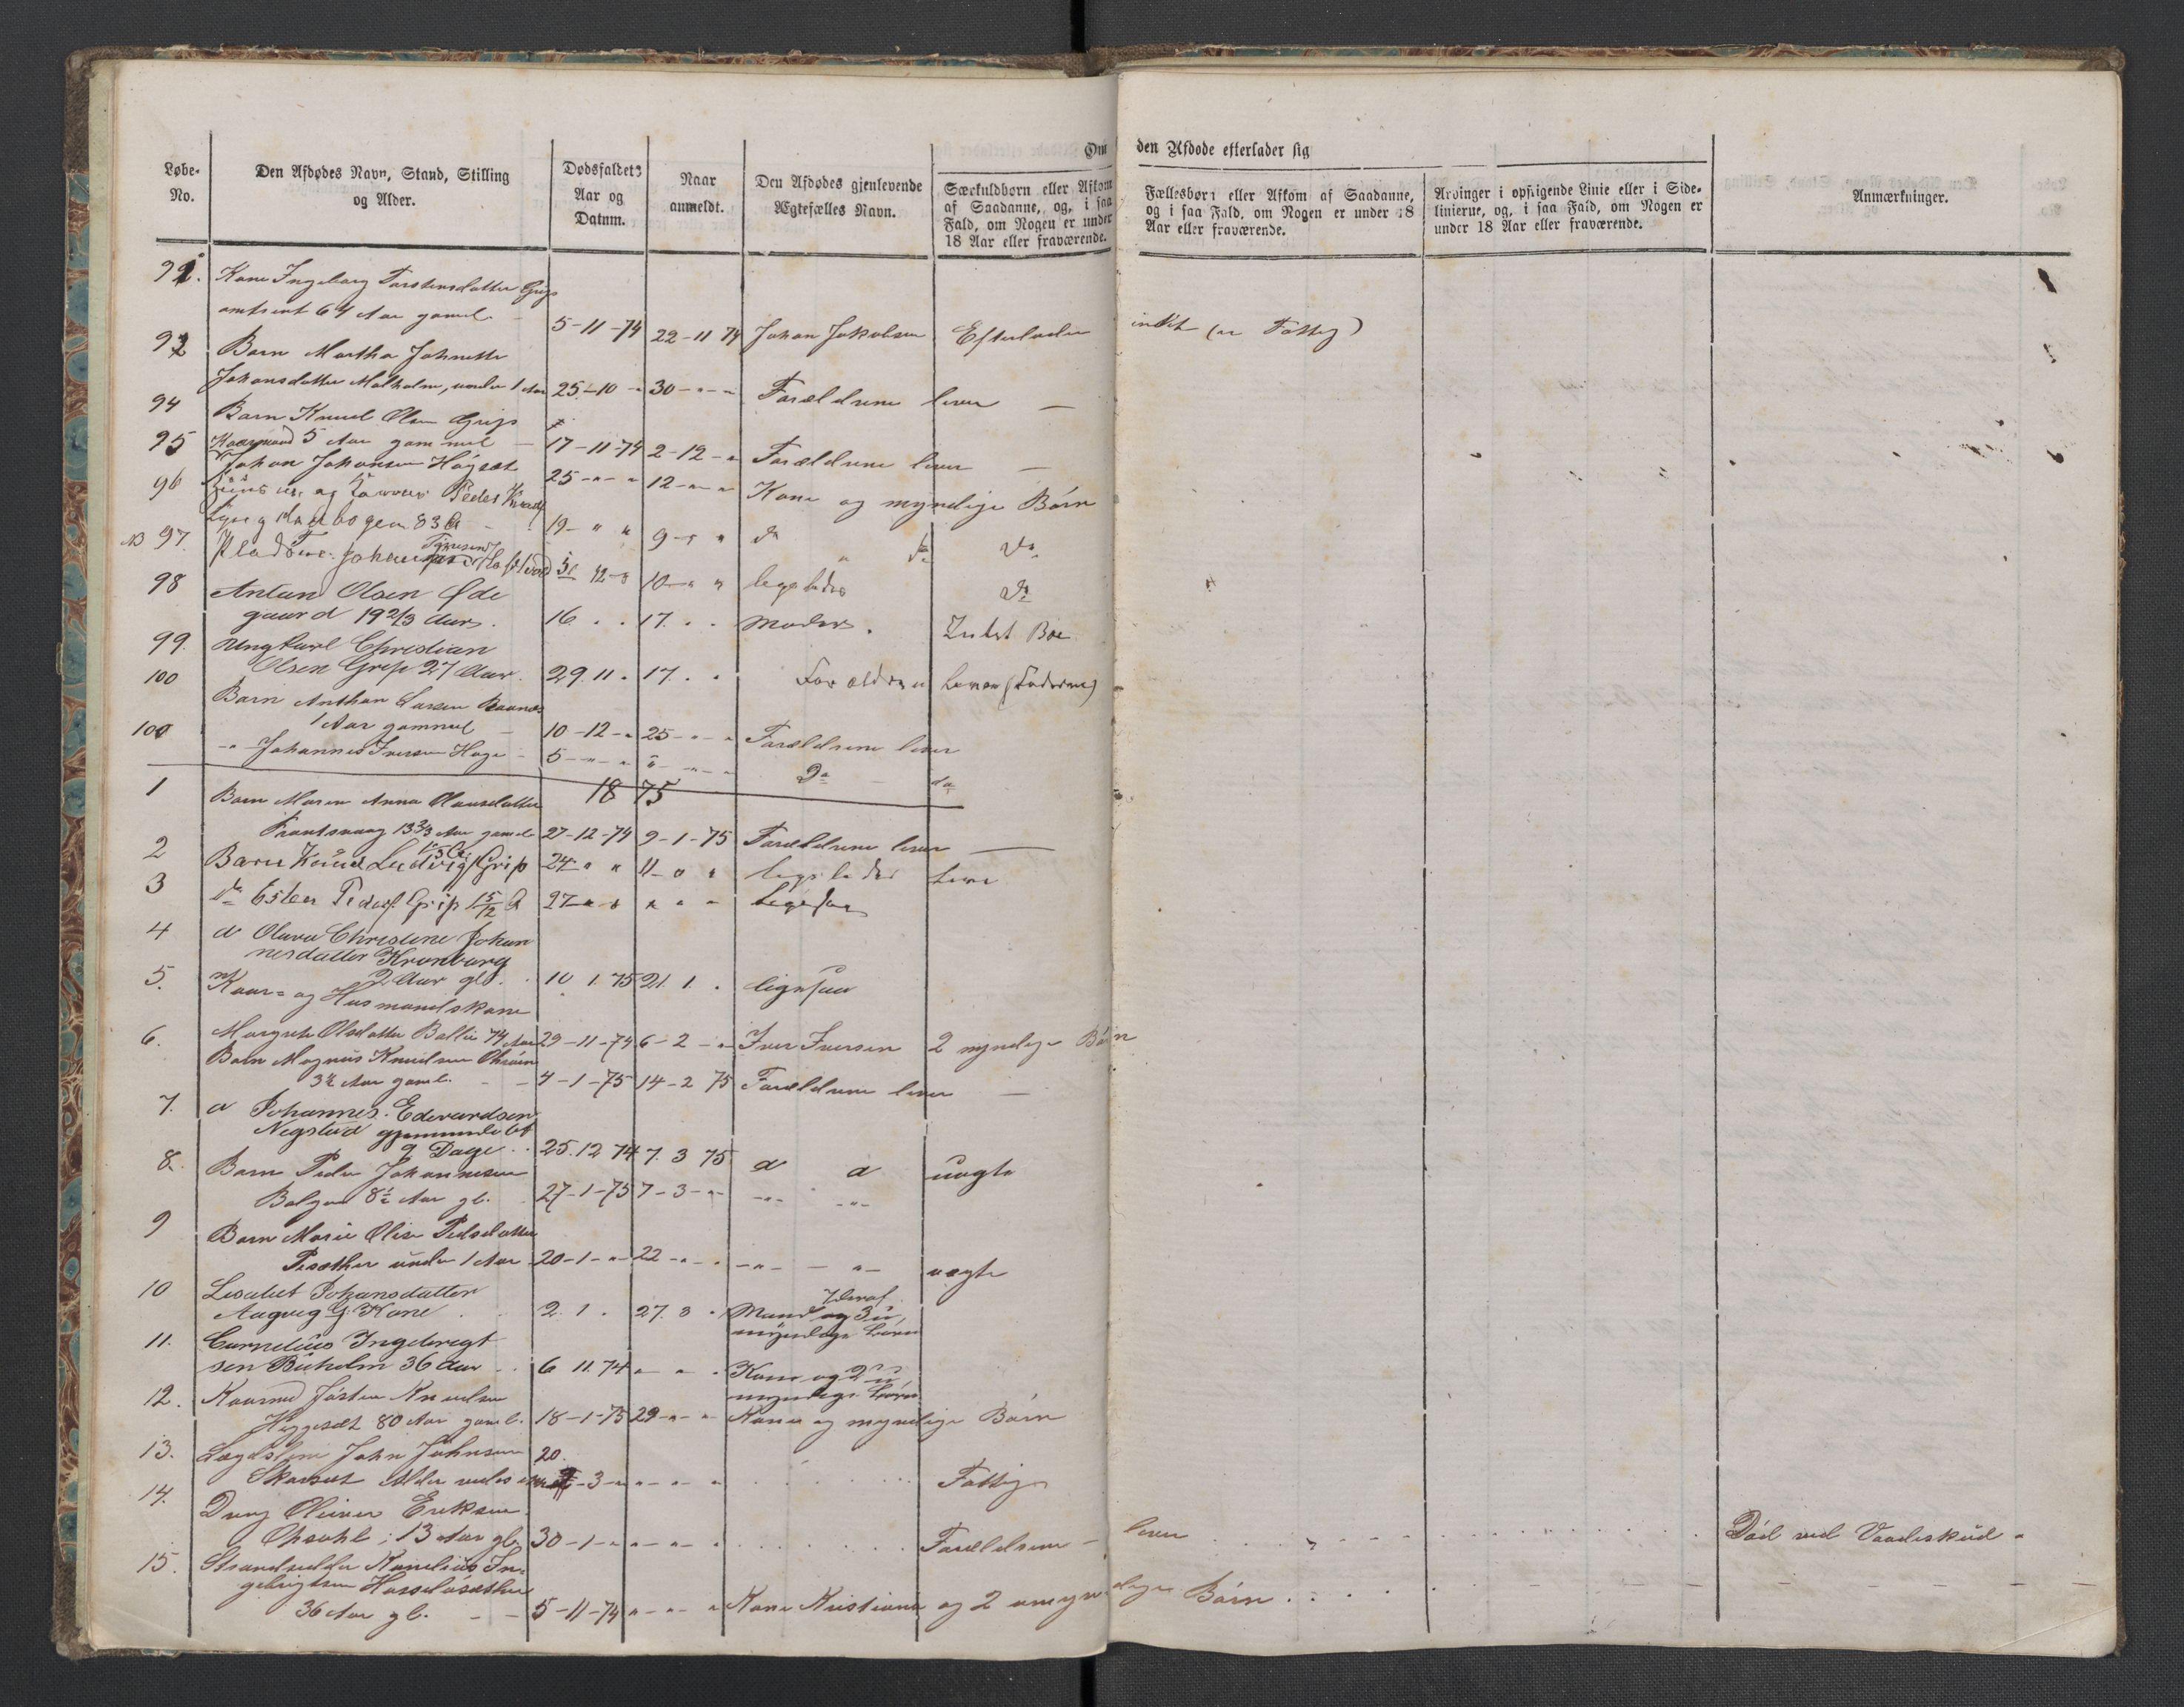 Løbe-
No.
Den Afdødes Navn, Stand, Stilling
og Alder.
Dødsfaldets
Aar og
Datum.
Naar
anmeldt.
Den Afdødes gjenlevende
Ægtefælles Navn.
Om
Særkuldbørn eller Afkom
af Saadanne, og, i saa
Fald, om Nogen er under
18 Aar eller fraværende.
den Afdøde efterlader sig
Fællesbørn eller Afkom af Saadanne,
og i saa Fald, om Nogen er under 18
Aar eller fraværende.
Arvinger i opstigende Linie eller i Side-
linierne, og, i saa Fald, om Nogen er
under 18 Aar eller fraværende.
Anmærkninger.
91. Kone Ingeborg Torstensdatter Grip
omtrent 64 Aar gamel. 5-11-74 22-11 74 Johan Jakobsen Efterlader intet (er Fattig)
92 Barn Martha Johnette
Johansdatter Malholm, under 1 Aar 25-10 - 30 - - - Forældrene lever —
94 Barn Knud Olsen Grip
5 Aar gammel - 17-11-74 2-12 - Forældrene lever —
95 Kaarmand Johan Johansen Høgset 25 - - - 12 - - Kone og myndige Børn
96 og Peder
83 A 19 - " " 9 - " " do do do
NB 97. Johannes 12 10 - " " ligeledes do
98 Anton Olsen Øde
gaard 19 2/3 Aar. 16 . . 17. . . Moder. Intet Boe
99. Ungkarl Christian
Olsen Grip 27 Aar. 29. 11. 17. . . Forældrene lever (Faderen)
100 Barn Anthon Larsen
1 Aar gammel - 10-12- 25 - - - Forældrene lever
100 -"- Johannes Iversen Hage - 5 - " - " - - - Do - do
1875
1 Barn Maren Anna Olausdatter
13 2/3 Aar gamel 27-12-74 9-1-75 Forældrene lever —
2 Barn Knud Ludvigs Grip 24 " " 11 - " " ligeledes Leve
3 do Esten Peders. Grip 1 5/12 A 27 - " - " " " " ligesaa
4 d Olava Christine Johan
nesdatter Kronborg
2 Aar gl. 10 1. 75 21. 1. . ligesaa
5. Kaar- og Husmandskone
Margrete Olsdatter 74 Aar 29-11-74 6-2 - Iver Iversen 2 myndige Børn
6. Barn Magnus Knudsen
3½ Aar gamel. - - 4-1-75 14-2 75 Forældrene lever —
7. d Johannes Edvardsen
Negstad
9 Dage . . 25. 12 74 7. 3 75 d d uægte
8. Barn Peder Johannesen
8½ Aar gl. - 27-1-75 7-3- - -"- -"-
9 Barn Marie Olise Pedsdatter
under 1 Aar 20-1-"- 22 - - . -"- — "- uægte
10 Lisabet Johansdatter
Aagvig G. Kone . . 2. 1 . 27. 3 . Mand og 7 deraf 3 u,
myndige Børn
11. Cornelius Ingebregt
sen Buholm 36 Aar . . 6 11 74 " - " . Kone og 2 u
myndige Børn
12. Kaarmd Josten Knudsen
Heggeset 80 Aar gamel. 18-1-75 29 -"- - Kone og myndige Børn
13. Lægdslem John Johnsen 20
Skarset Alder vides -3- " - " - " . . . . Fattig
14. Dreng Oliver Eriksen
Opsahl; 13 Aar gl. 30-1- " " - " - " . . . . Forældrene - lever . . . . . . Død ved Vaadeskud -
15. Strandsidder Kornelius In-
gebrigtsen
36 Aar gl. - - 5-11-74 " - " - " Kone Kristiana og 2 umyndige Børn . . . .